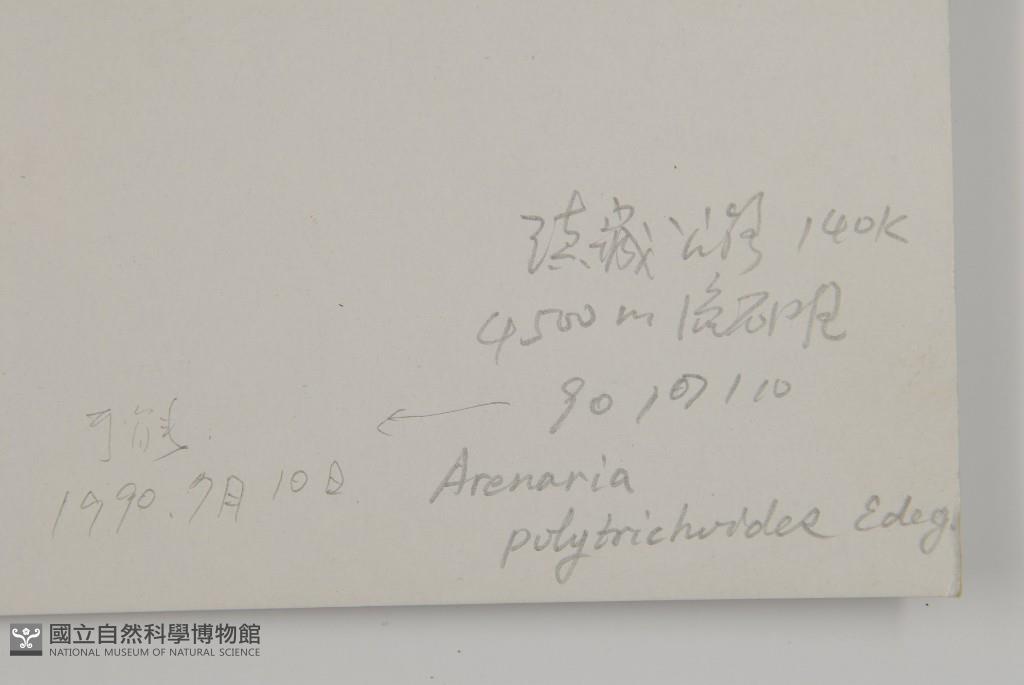 滇藏公路 140K
4500 m 流石
90 10
Arenaria
polytrichoides Edeg.
可能
1990. 7月 10日
國立自然科學博物館
NATIONAL MUSEUM OF NATURAL SCIENCE